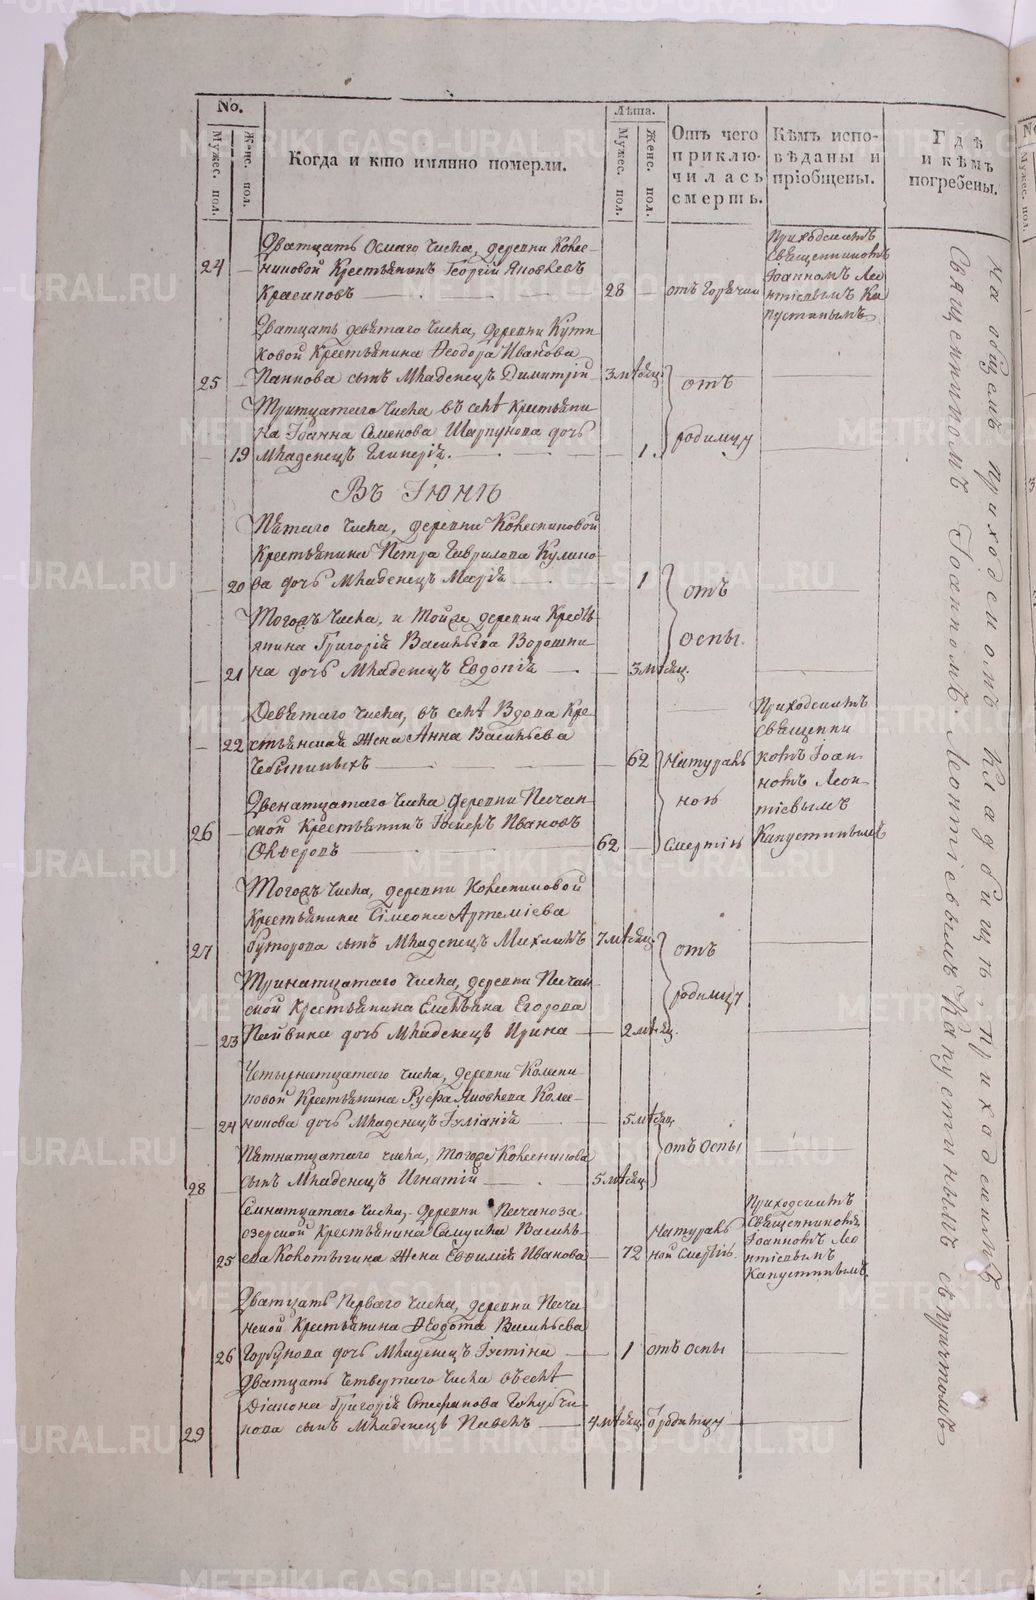 No.
Мужес. пол.
Женс. пол.
Когда и кто имянно померли.
Лѣта.
Мужес. пол.
Женс. пол.
Отъ чего
приклю-
чилась
смерть.
Кѣмъ испо-
вѣданы и
пріобщены.
Гдѣ
и кѣмъ
погребены.
Дватцать Осмаго Числа, деревни Колес-
24 — никовой Крестьянинъ Георгій Яковлевъ
Красиковъ — 28 — отъ Горячки
Приходскимъ
Священникомъ
Іоанномъ Лео
нтіевымъ Ка
пустинымъ
Дватцать девятаго Числа, деревни
ковой Крестьянина Ѳеодора Иванова
25 — Паннова сынъ Младенецъ Димитрій 3 мѣсяц.
отъ
родимцу
Тритцатаго Числа въ селѣ Крестьяни
на Іоанна Семенова Шарпунова дочь
— 19 Младенецъ Гликерія. — 1.
Въ Іюнѣ
Пятаго Числа, деревни Колесниковой
Крестьянина Петра Гаврилова Кулико-
— 20 ва дочь Младенецъ Марія — 1
отъ
оспы.
Тогожъ Числа, и Тойже деревни Кресть
янина Григорія Васильева Ворошни
— 21 на дочь Младенецъ Евдокія — 3 мѣсяц.
Девятаго Числа, въ селѣ Вдова Кре-
— 22 стьянская Жена Анна Васильева
— 62
Натураль
ною
смертію
Приходскимъ
священни
комъ Іоан-
номъ Леон-
тіевымъ
Капустинымъ
Двенатцатаго Числа деревни Песчан-
26 — ской Крестьянинъ Іосифъ Ивановъ
62 —
Тогожъ Числа, деревни Колесниковой
Крестьянина Сімеона Артеміева
27 Буторова сынъ Младенецъ Михаилъ 7 мѣсяц.
отъ
родимцу
Тринатцатаго Числа, деревни Песчан
ской Крестьянина Емельяна Егорова
— 23 Пайвина дочь Младенецъ Ирина — 2 мѣсяц.
Четырнатцатаго числа, деревни
новой Крестьянина Руфа Яковлева
— 24 никова дочь Младенецъ Іуліанія — 5 мѣсяц
отъ Оспы
Пятнатцатаго числа, тогоже Колесникова
28 — сынъ Младенецъ Игнатій — 5 мѣсяц
Семнатцатаго Числа, деревни Песчаноза
озерской Крестьянина Самуила Василь
25 ева Кокотыгина Жена Евѳимія Иванова — 72
Натураль
ной Смертію
Приходскимъ
Священникомъ
Іоанномъ Лео
нтіевымъ
Капустинымъ.
Дватцать Перваго Числа, деревни Песча
нской Крестьянина Ѳеодота Васильева
26 Горбунова дочь Младенецъ Іустина — 1 отъ Оспы
Дватцать Четвертаго Числа въ селѣ
Діакона Григорія Стефанова Голубчи
29 кова сынъ Младенецъ Павелъ — 4 мѣсяц. Ѿ родимцу
На общемъ приходскомъ Кладбищѣ, приходскимъ
Священникомъ Іоанномъ Леонтіевымъ Капустинымъ съ причтомъ
METRIKI.GASO-URAL.RU